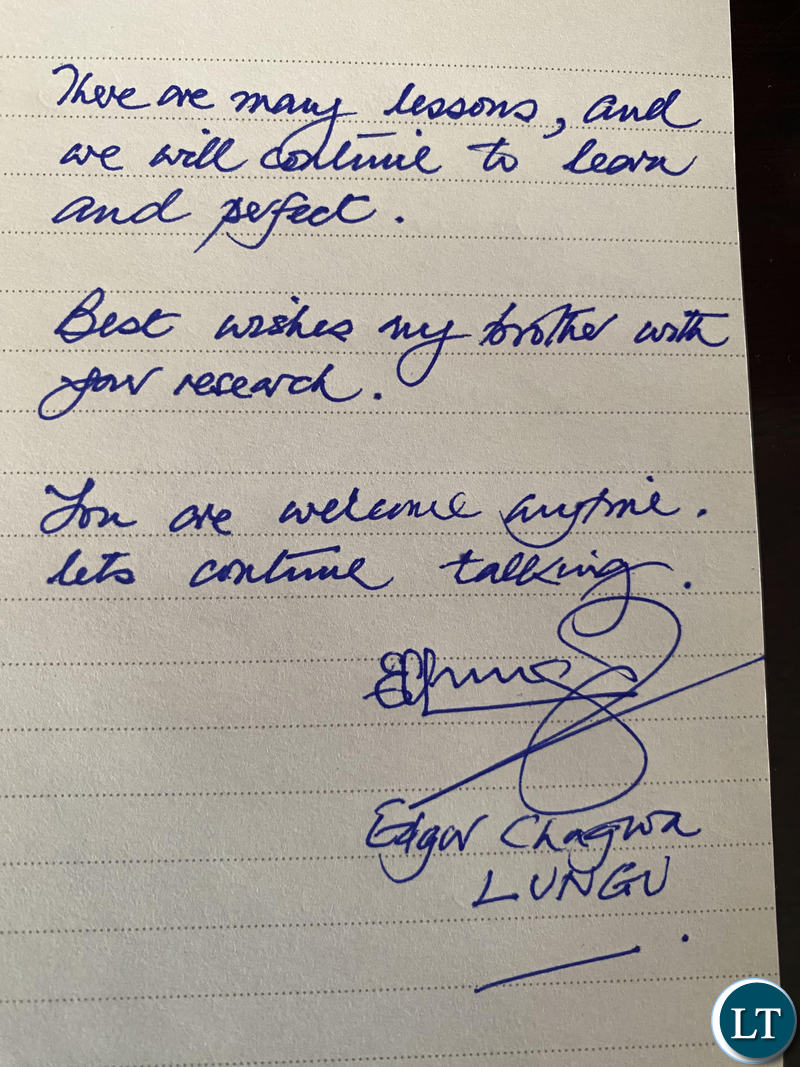 There are many lessons, and
we will continue to learn
and perfect.
Best wishes my brother with
your research.
You are welcome anytime.
lets continue talking.
Edgar Chagwa
LUNGU
LT